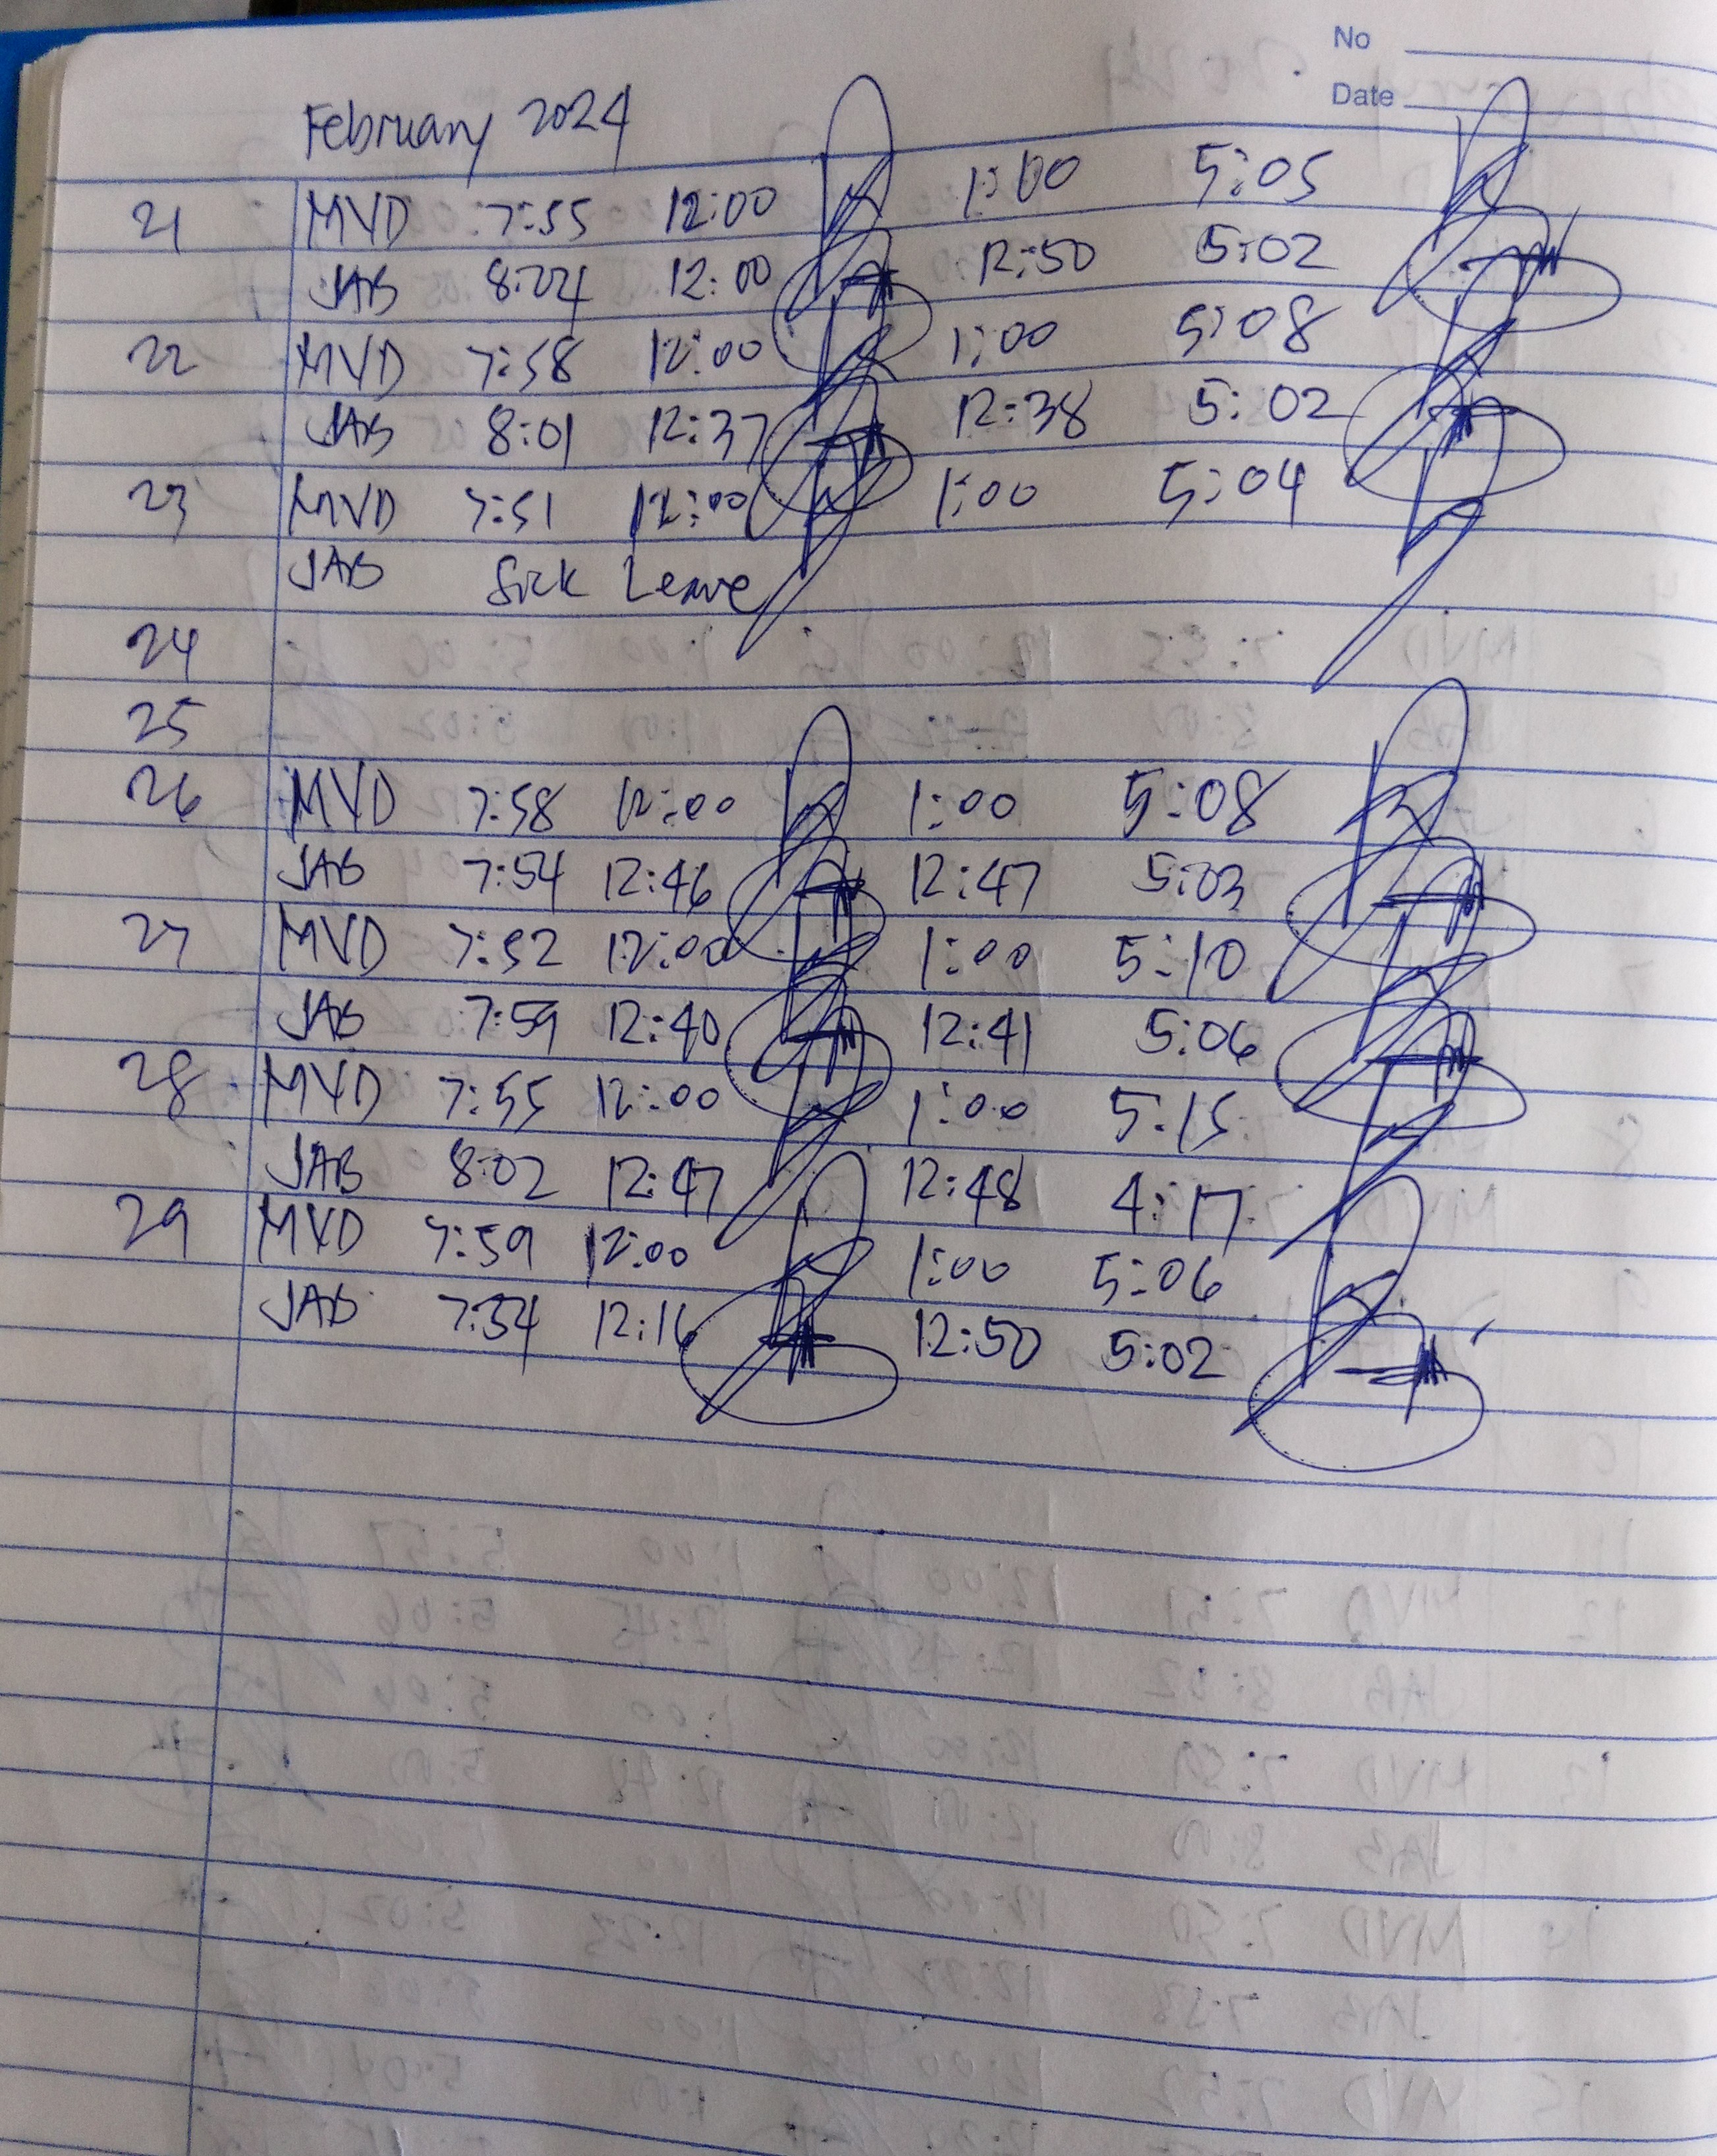 No
Date
February 2024
21 MVD 7:55 12:00 1:00 5:05
JAB 8:24 12:00 12:50 5:02
22 MVD 7:58 12:00 1:00 5:08
JAB 8:01 12:37 12:38 5:02
23 MVD 7:51 12:00 1:00 5:04
JAB Sick Leave
24
25
26 MVD 7:58 12:00 1:00 5:08
JAB 7:54 12:46 12:47 5:03
27 MVD 7:52 12:00 1:00 5:10
JAB 7:59 12:40 12:41 5:06
28 MVD 7:55 12:00 1:00 5:15
JAB 8:02 12:47 12:48 4:17
29 MVD 7:59 12:00 1:00 5:06
JAB 7:54 12:16 12:50 5:02